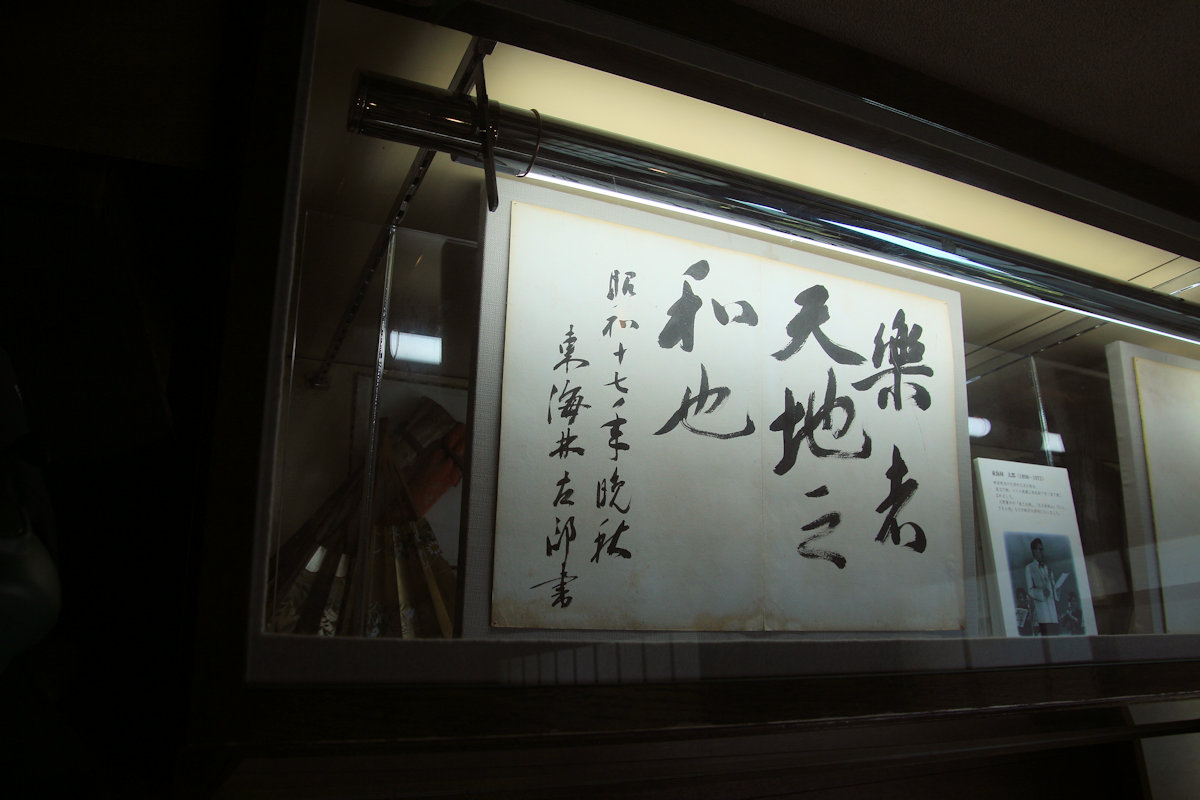 樂者
天地之
和也
昭和十七年晩秋
東海林太郎書
東海林 太郎(1898-1972)